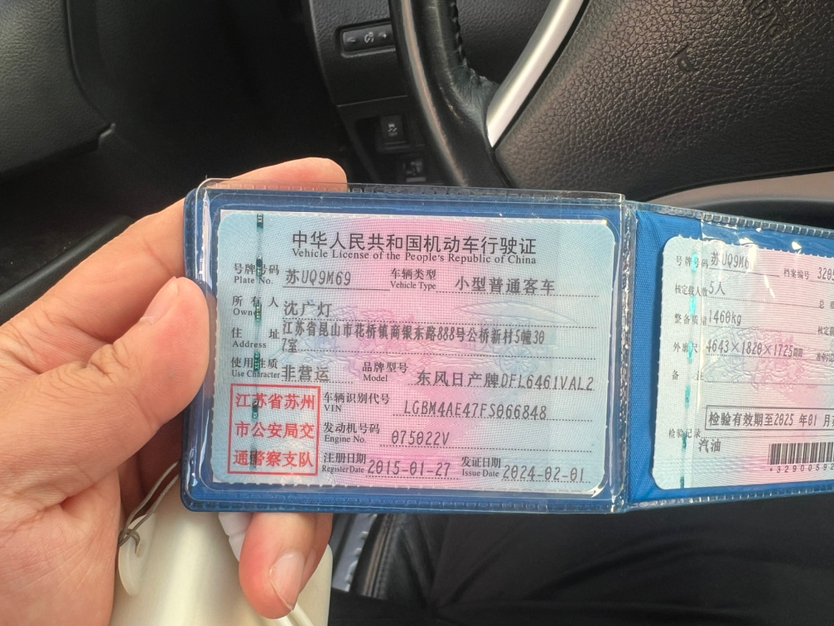 中华人民共和国机动车行驶证
Vehicle License of the People's Republic of China
号牌号码 苏UQ9M69 车辆类型 小型普通客车
Plate No. Vehicle Type
所有人 沈广灯
Owner
住址 江苏省昆山市花桥镇商银东路888号公桥新村5幢30
Address 7室
使用性质 非营运 品牌型号 东风日产牌DFL6461VAL2
Use Character Model
江苏省苏州
市公安局交
通警察支队
车辆识别代号 LGBM4AE47FS066848
VIN
发动机号码 075022V
Engine No.
注册日期 2015-01-27 发证日期 2024-02-01
Register Date Issue Date
号牌号码 苏UQ9M6 档案编号 3205
核定载人数 5人 总
整备质量 1460kg 核定
外廓尺 4643×1820×1725mm
备注
检验有效期至2025年01月
检验记录
汽油